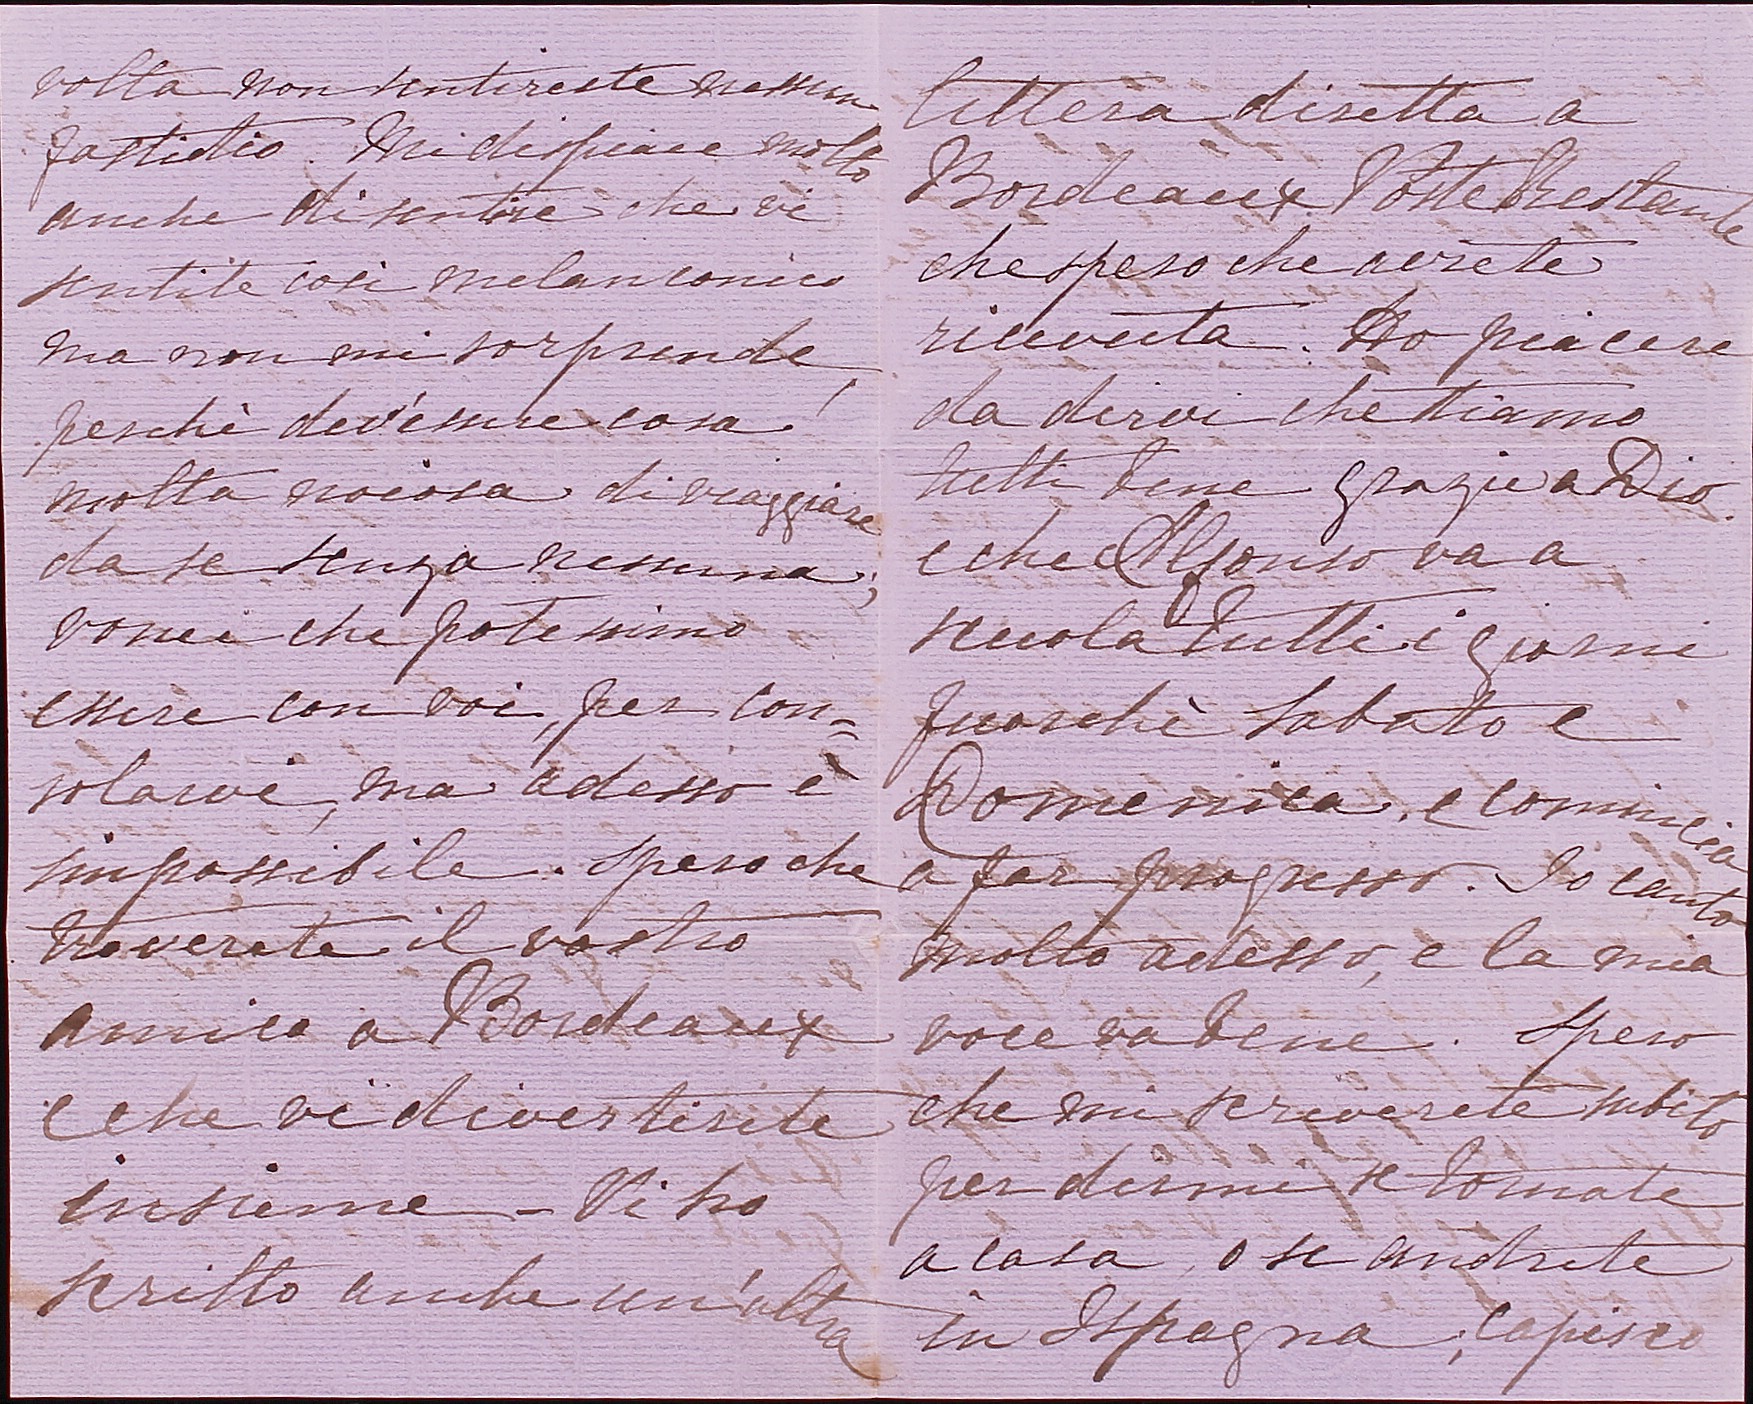 volta non sentireste nessun
fastidio. Mi dispiace molto
anche di sentire che vi
sentite così melanconico
ma non mi sorprende,
perchè dev'essere cosa
molta noiosa di viaggiare
da se senza nessuna;
vorrei che potessimo
essere con voi, per con=
solarvi, ma adesso è
impossibile. Spero che
troverete il vostro
amico a Bordeaux
e che vi divertirete
insieme - Vi ho
scritto anche un'altra
lettera diretta a
Bordeaux Poste Restante
che spero che avrete
ricevuta. Ho piacere
da dirvi che stiamo
tutti bene grazie a Dio.
e che Alfonso va a
scuola tutti i giorni
fuorchè Sabato e
Domenica, e comincia
a far progresso. Io canto
molto adesso, e la mia
voce va bene. Spero
che mi scriverete subito
per dirmi se tornate
a casa, o se andrete
in Ispagna; capisco